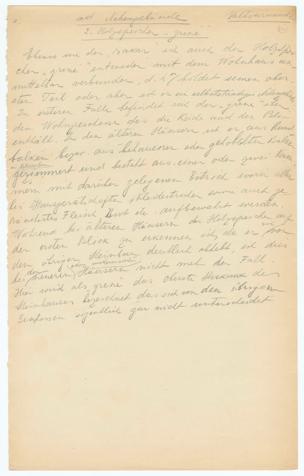 ad Nebengebäude
2. Holzspeicher "grenë"
Ebenso wie der "bazar" ist auch der Holzspei-
cher "grenë" entweder mit dem Wohnhaus un-
mittelbar verbunden, d. h. bildet seinen ober-
sten Teil oder aber ist er ein selbstständiges
Im ersteren Fall befindet sich der "grenë" über
den Wohngeschoss das die Küche und den
enthält. In den älteren Häusern ist er aus Rund-
balken bezw. aus behauenen oder gehobelten Balken
gezimmert und besteht aus einem oder zwei Räu-
men mit darüber gelegenem Estrich worin alle
bei Hausgerätschaften Kleidertruhen sowie auch ge-
trocknetes Fleisch Brot etc. aufbewahrt werden.
Während bei älteren Häusern der Holzspeicher auf
den ersten Blick zu erkennen ist, da er sich von
dem übrigen Steinbau deutlich abhebt, ist dies
bei den neueren Häusern nicht mehr der Fall.
Hier wird als grenë das oberste Stockwerk des
Steinhauses bezeichnet das sich von den übrigen
Geschossen eigentlich gar nicht unterscheidet